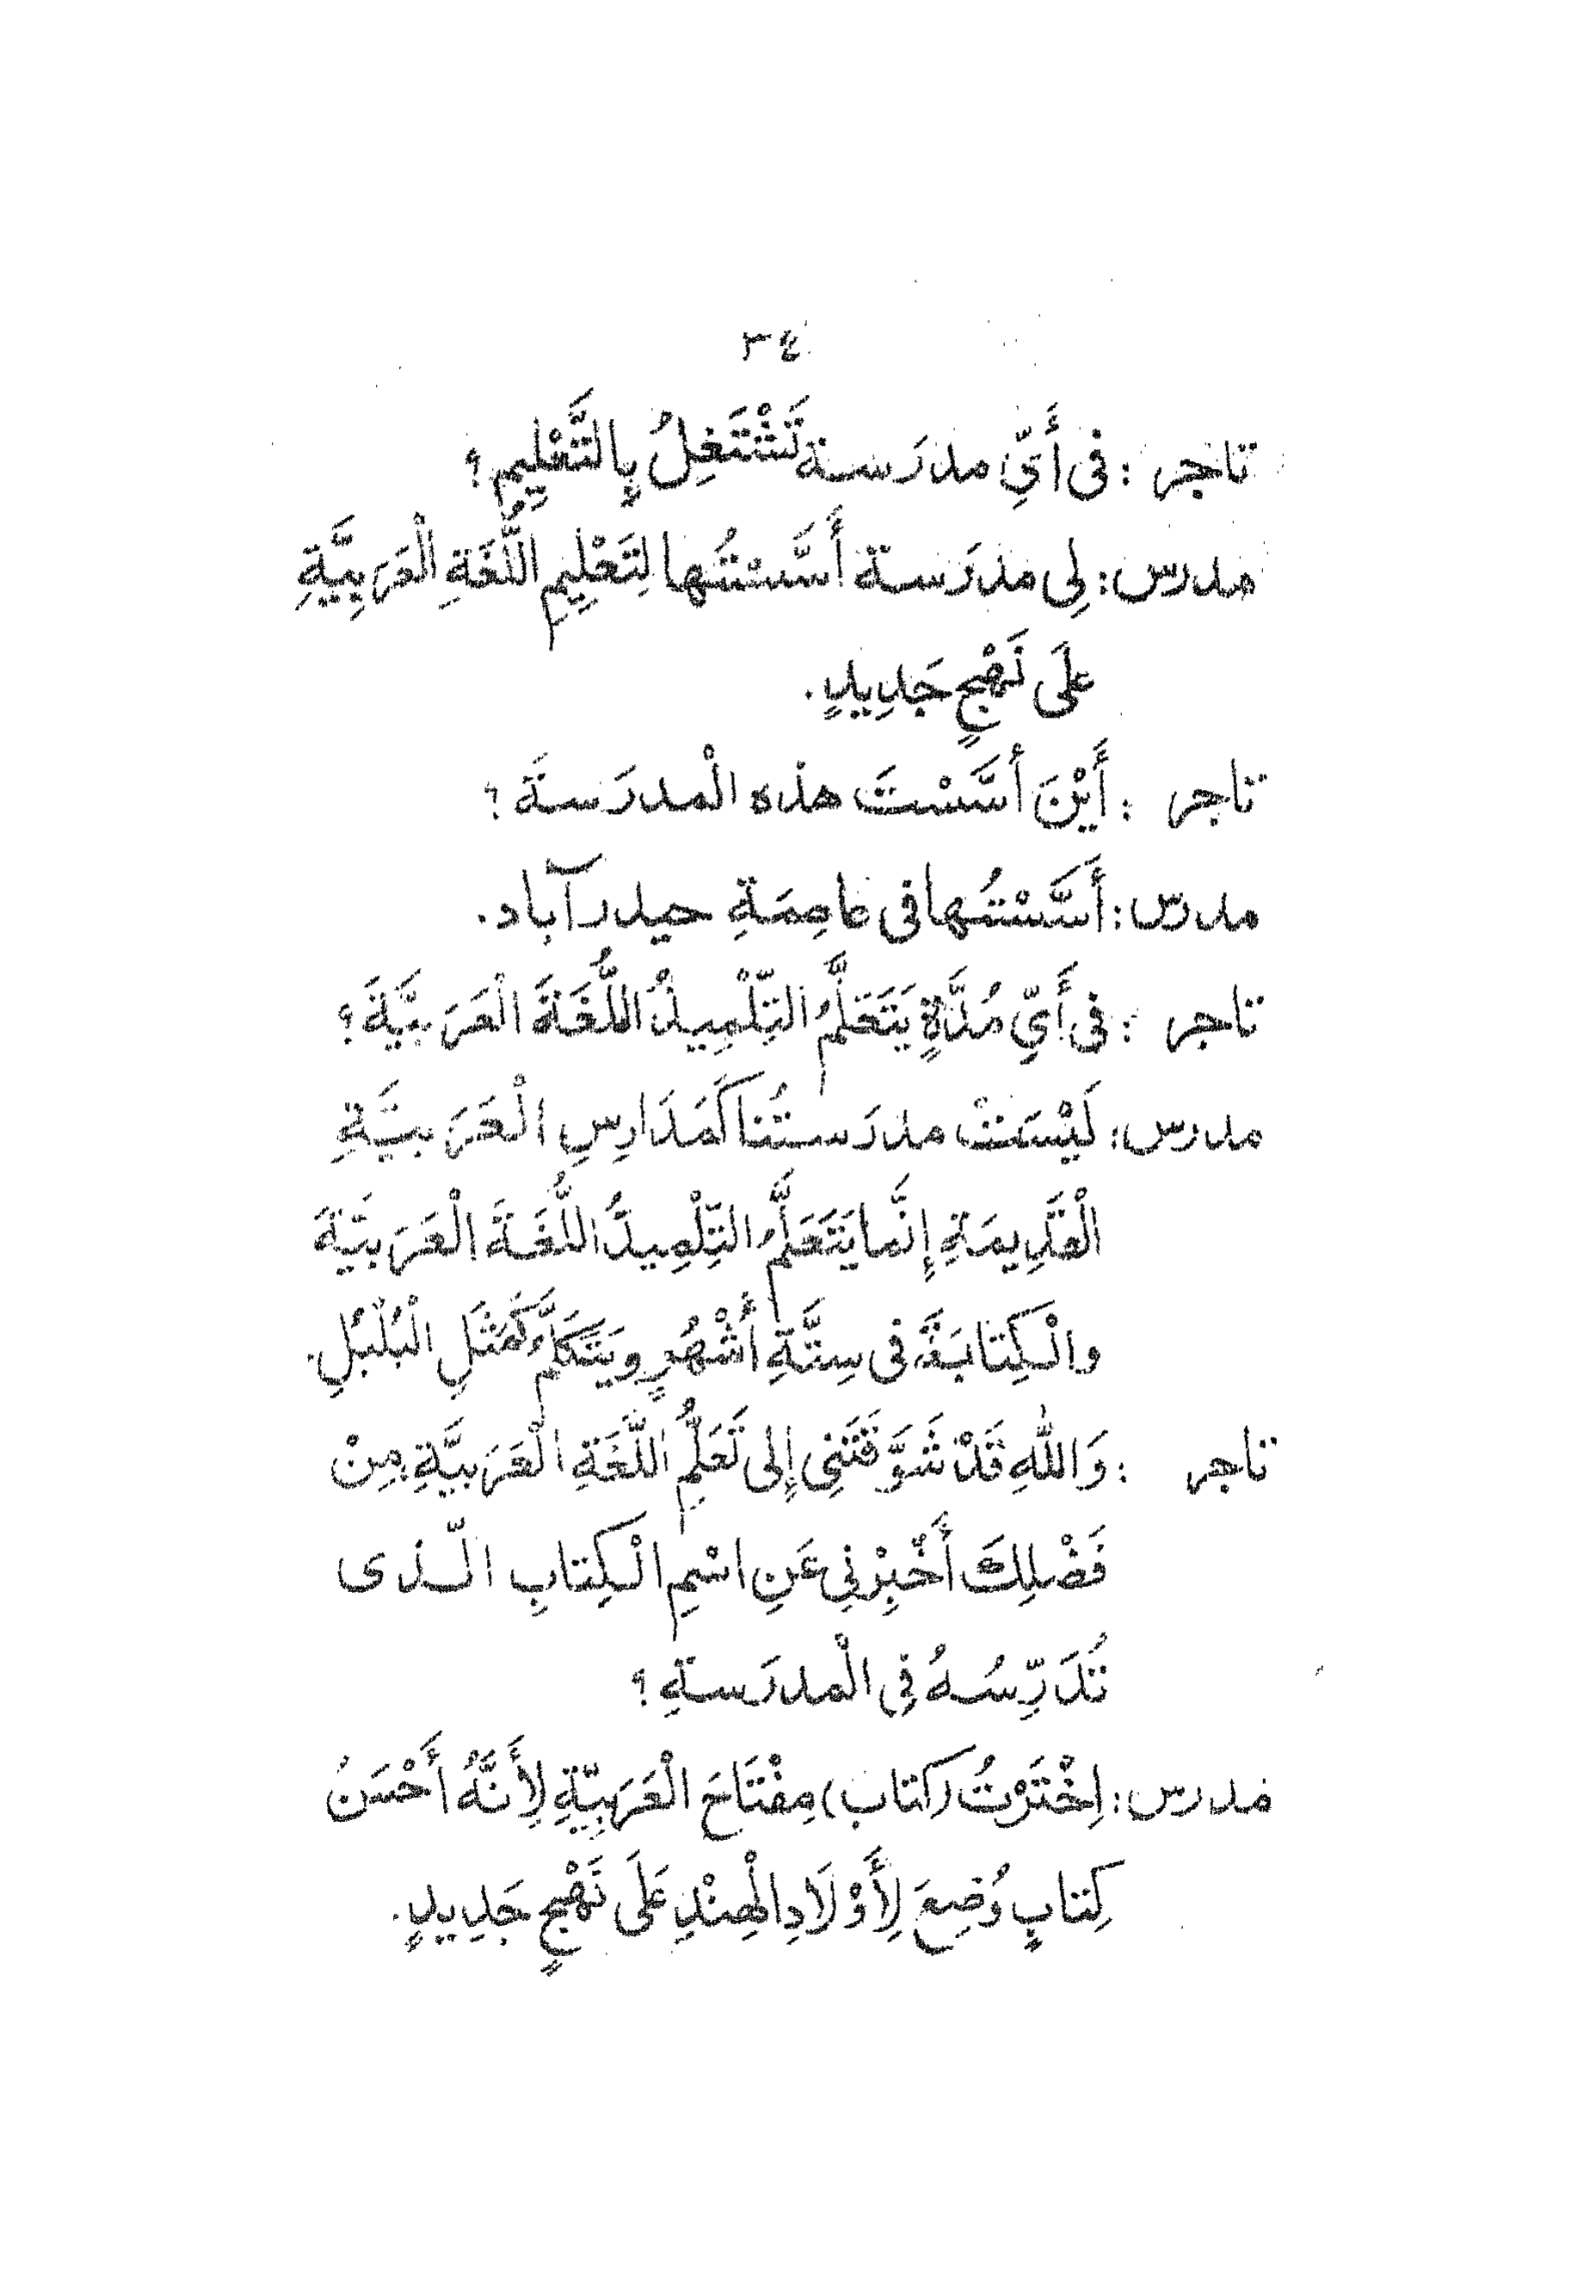 ٣٤
تاجر : فى أَيِّ مدرَسة تَشْتَغِلُ بِالتَّعْلِيمِ؟
مدرس: لِى مدرَسة أَسَّسْتُها لِتَعْلِيمِ اللُّغَةِ الْعَرَبِيَّةِ
علَى نَهْجٍ جَدِيدٍ.
تاجر : أَيْنَ أسَّسْتَ هذه الْمدرَسةَ؟
مدرس: أَسَّسْتُها فى عاصِمَةِ حيدرآباد.
تاجر : فى أَيِّ مُدَّةٍ يَتَعَلَّمُ التِّلْمِيذُ اللُّغَةَ الْعَرَبيَّةَ؟
مدرس: لَيْسَتْ مدرَستُنا كَمَدَارِسِ الْعَرَبيَّةِ
الْقَدِيمَةِ إِنَّما يَتَعَلَّمُ التِّلْمِيذُ اللُّغَةَ الْعَرَبيَّةَ
والْكِتابَةَ فى سِتَّةِ أَشْهُرٍ ويَتَكَلَّمُ كَمَثَلِ الْبُلْبُلِ.
تاجر : وَاللهِ قَدْ شَوَّقْتَنِى إِلى تَعَلُّمِ اللُّغَةِ الْعَرَبيَّةِ مِنْ
فَضْلِكَ أَخْبِرْنِي عَنِ اسْمِ الْكِتابِ الّذى
تُدَرِّسُهُ فِى الْمدرَسةِ؟
مدرس: اِخْتَرْتُ (كتاب) مِفْتَاحَ الْعَرَبِيّةِ لِأَنَّهُ أَحْسَنُ
كِتابٍ وُضِعَ لِأَوْلَادِ الْهِنْدِ عَلَى نَهْجٍ جَدِيدٍ.